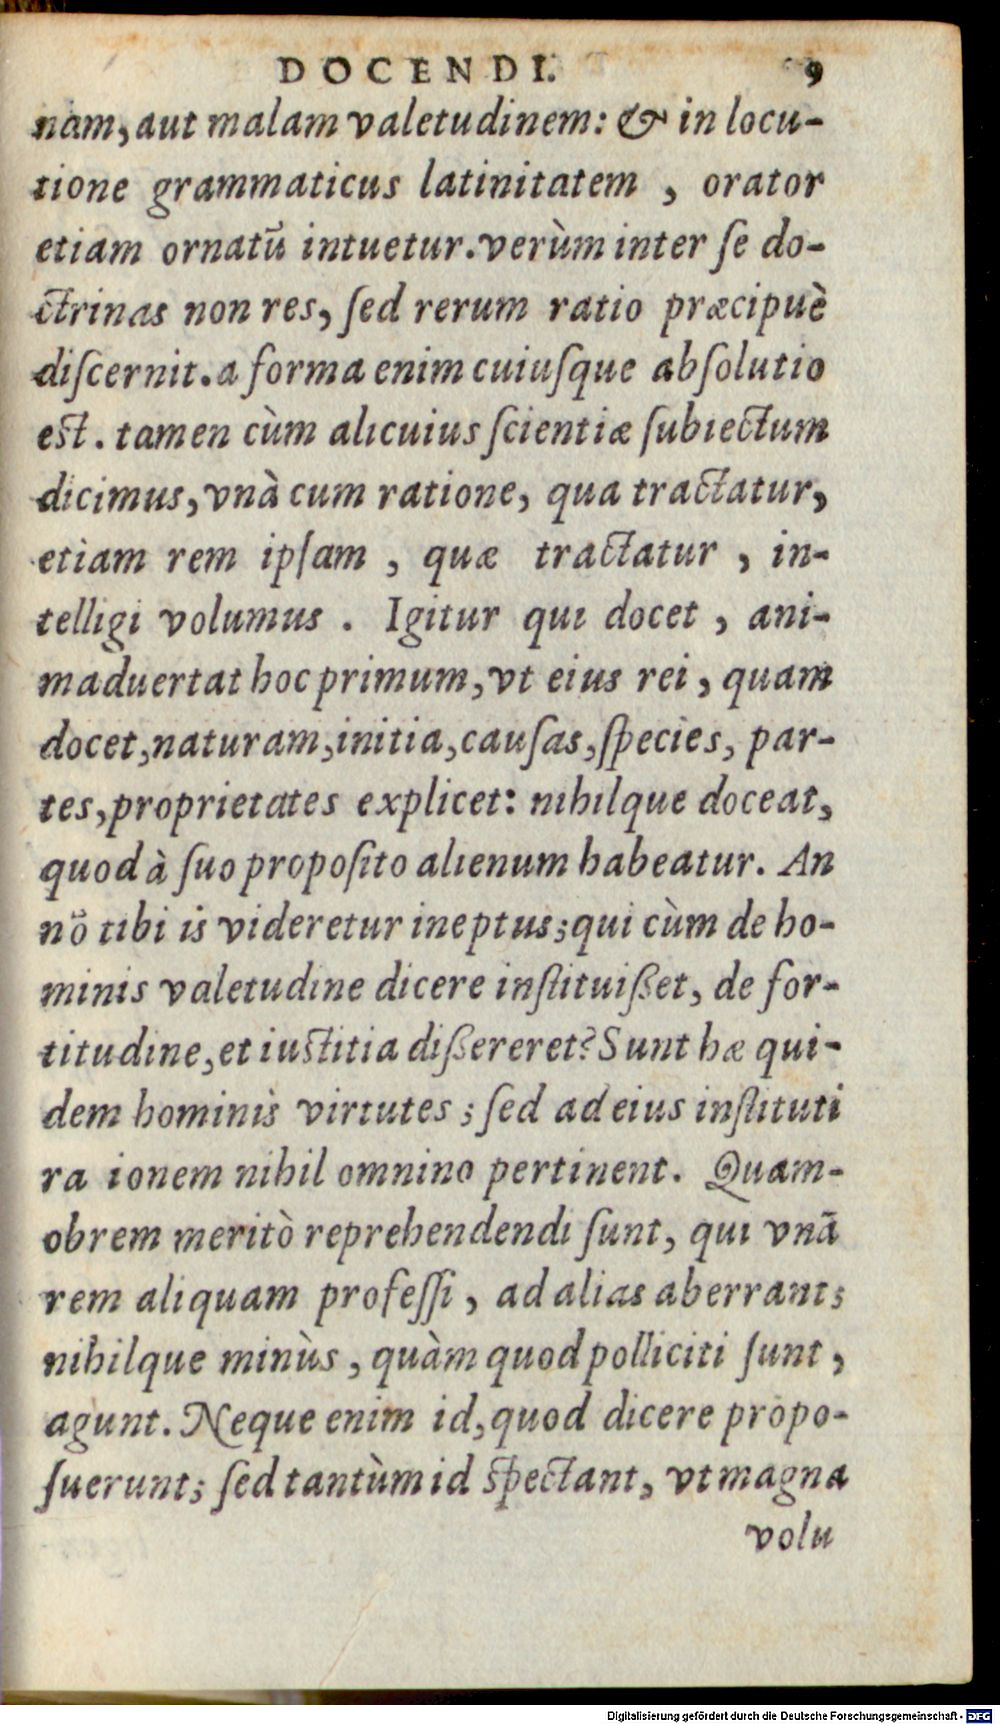 DOCENDI. 9
nam, aut malam valetudinem: & in locu-
tione grammaticus latinitatem , orator
etiam ornatū intuetur. verùm inter ſe do-
ctrinas non res, ſed rerum ratio præcipuè
diſcernit. a forma enim cuiuſque abſolutio
est. tamen cùm alicuius ſcientiæ ſubiectum
dicimus, vnà cum ratione, qua tractatur,
etiam rem ipſam , quæ tractatur , in-
telligi volumus . Igitur qui docet , ani-
maduertat hoc primum, vt eius rei , quam
docet, naturam, initia, cauſas, ſpecies, par-
tes, proprietates explicet: nihilque doceat,
quod à ſuo propoſito alienum habeatur. An
nō tibi is videretur ineptus; qui cùm de ho-
minis valetudine dicere inſtituißet, de for-
titudine, et iustitia dißereret? Sunt hæ qui-
dem hominis virtutes ; ſed ad eius inſtituti
ra ionem nihil omnino pertinent. Quam-
obrem meritò reprehendendi ſunt, qui vnā
rem aliquam profeſſi , ad alias aberrant;
nihilque minùs , quàm quod polliciti ſunt ,
agunt. Neque enim id, quod dicere propo-
ſuerunt; ſed tantùm id ſpectant, vt magna
volu
Digitalisierung gefördert durch die Deutsche Forschungsgemeinschaft - DFG